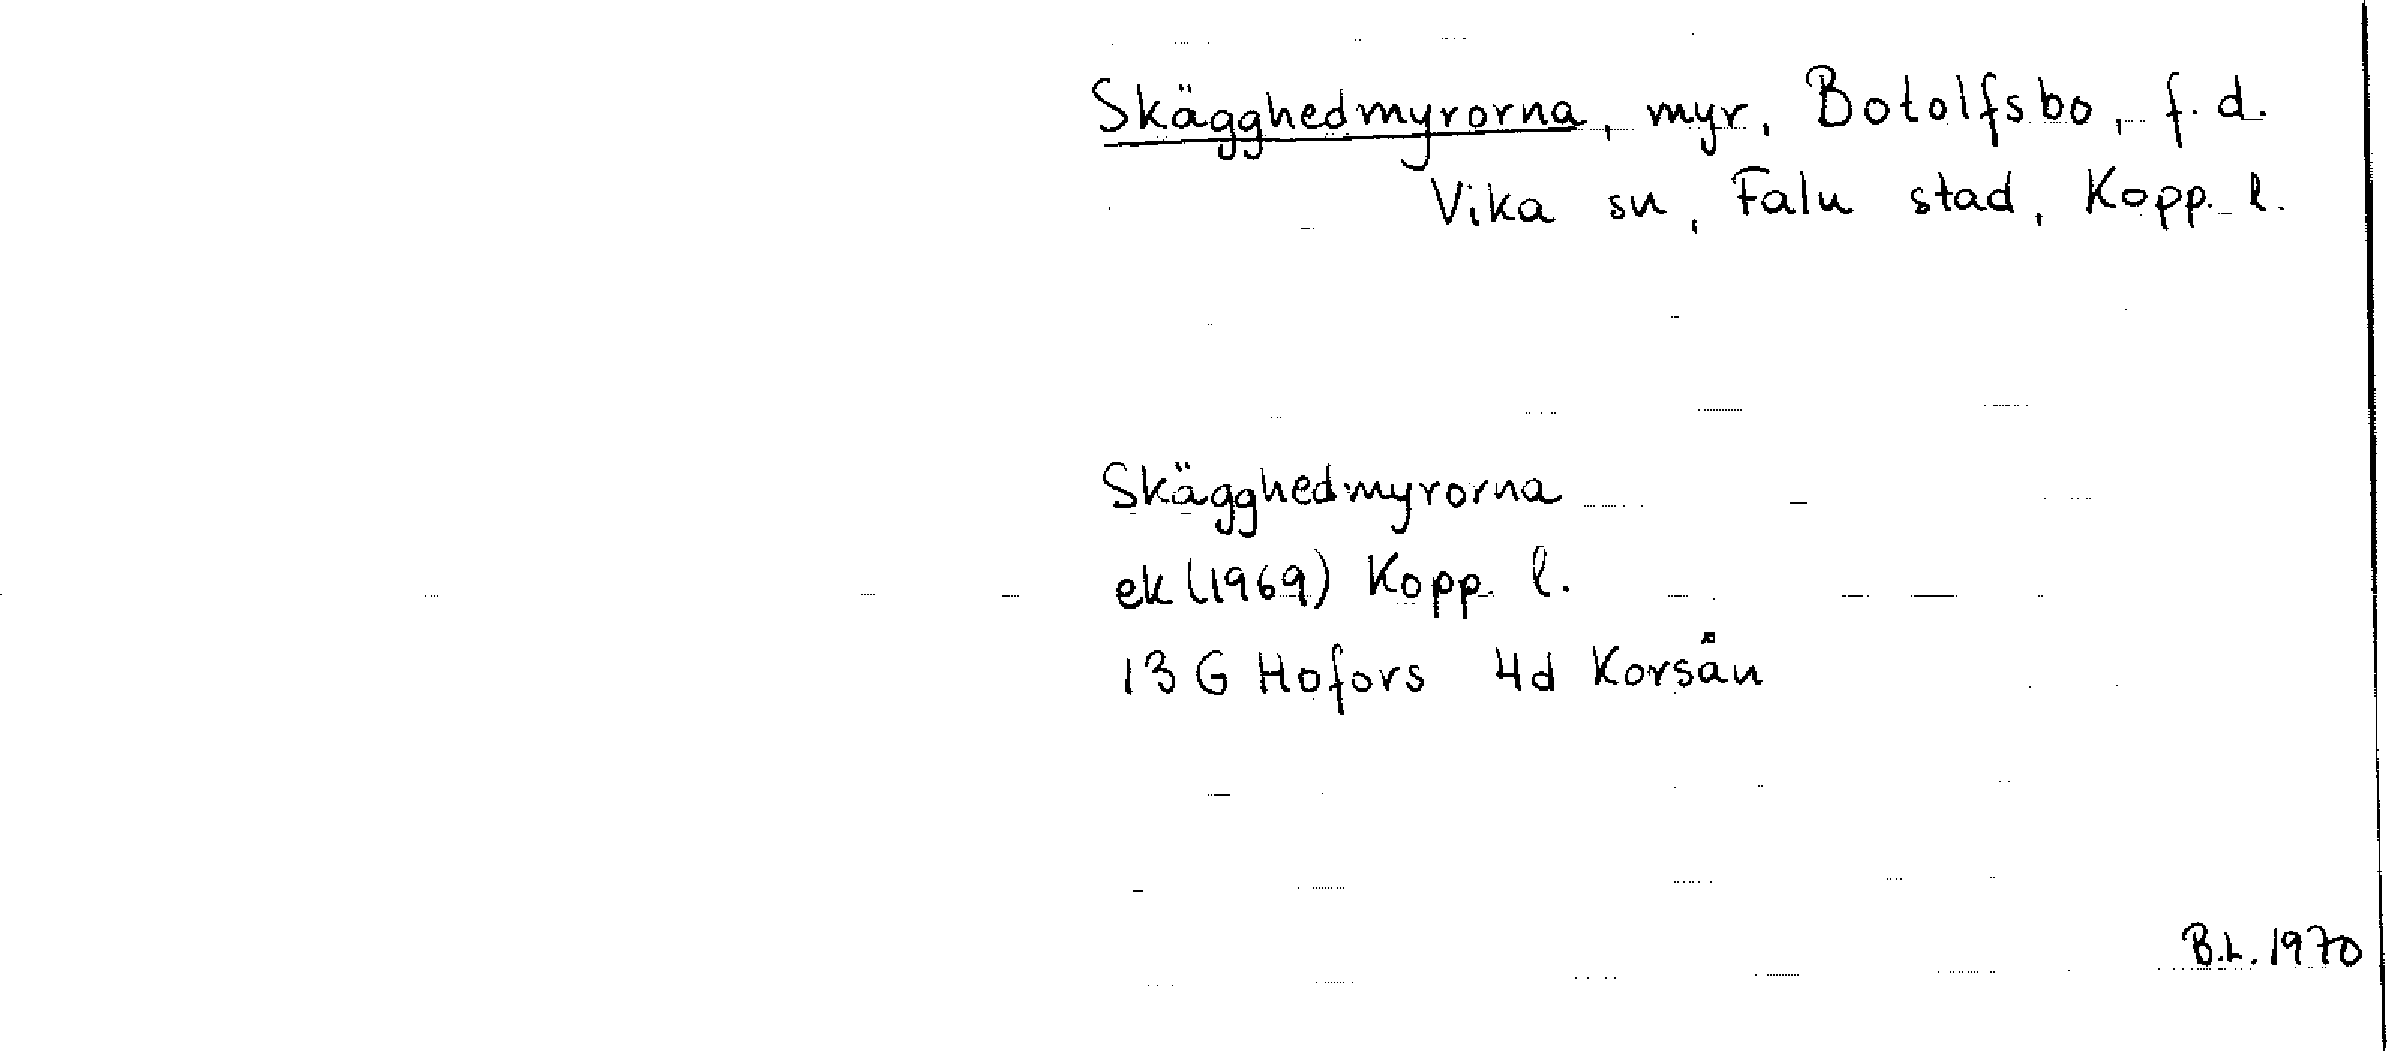 Skägghedmyrorna, myr, Botolfsbo, f.d.
Vika sn, Falu stad, Kopp. l.
Skägghedmyrorna
ek (1969) Kopp. l.
13 G Hofors 4d Korsån
B.L. 1970